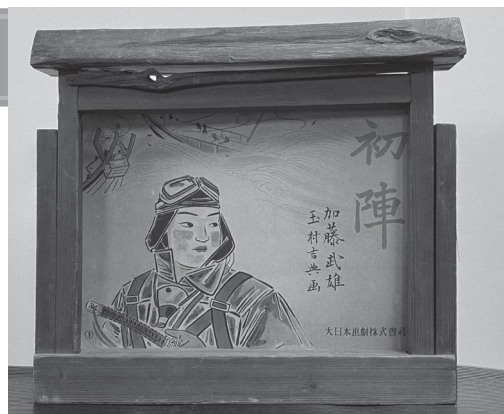 初陣
加藤武雄
玉村吉典画
大日本画劇株式會社
(1)